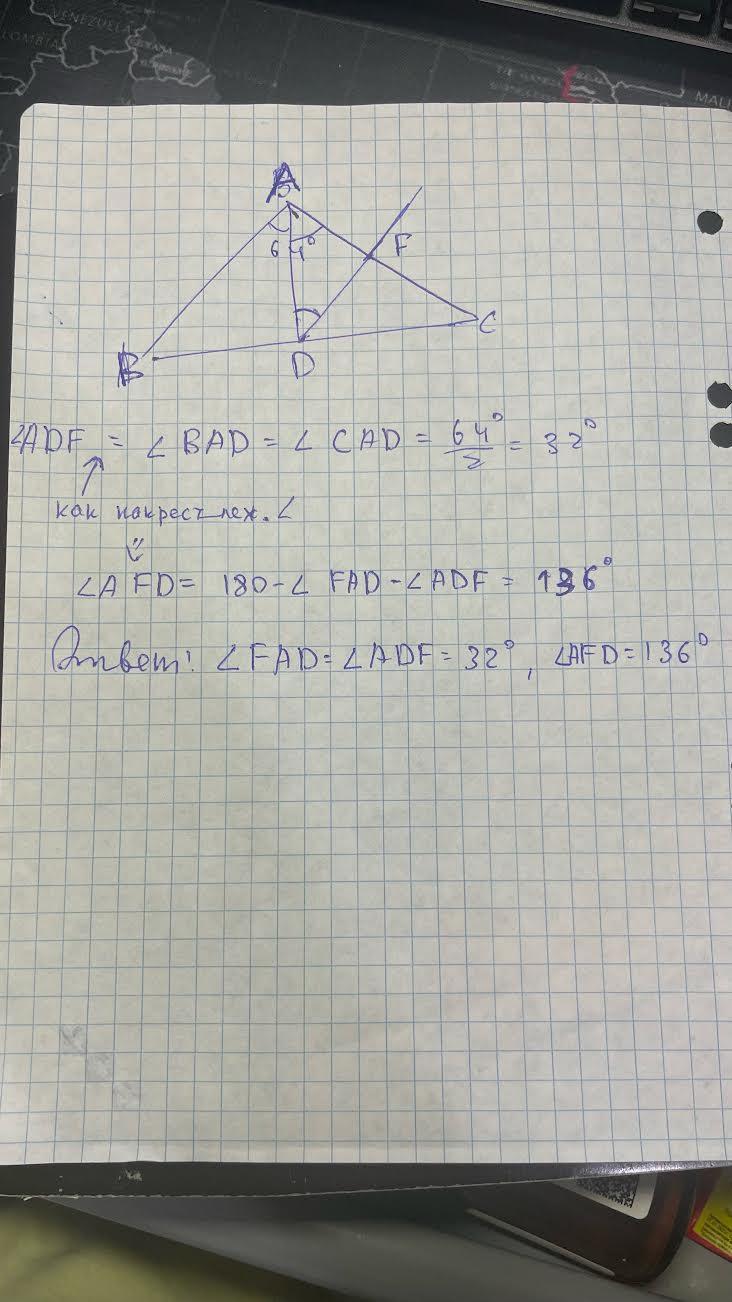 VENEZUELA
MALI
A
64°
F
B
D
C
∠ADF = ∠ BAD = ∠ CAD = 64°/2 = 32°
как накрест леж. ∠
∠AFD = 180 - ∠ FAD - ∠ADF = 136°
Ответ: ∠FAD = ∠ADF = 32°, ∠AFD = 136°